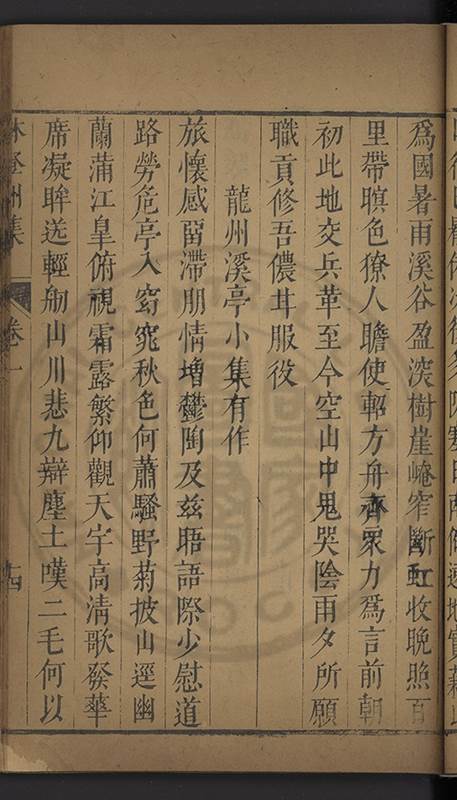 爲國暑雨溪谷盈淡樹崖崦窄斷虹收晚照百
里帶瞑色獠人瞻使軺方舟齊衆力爲言前朝
初此地交兵革至今空山中鬼哭陰雨夕所願
職貢修吾儂甘服役
龍州溪亭小集有作
旅懷感畱滯朋情增鬱陶及玆晤語際少慰道
路勞危亭入窈窕秋色何蕭騷野菊披山逕幽
蘭蒲江臯俯視霜露繁仰觀天宇高清歌發華
席凝眸送輕舠山川悲九辯塵土嘆二毛何以
林登州集
卷一
十四